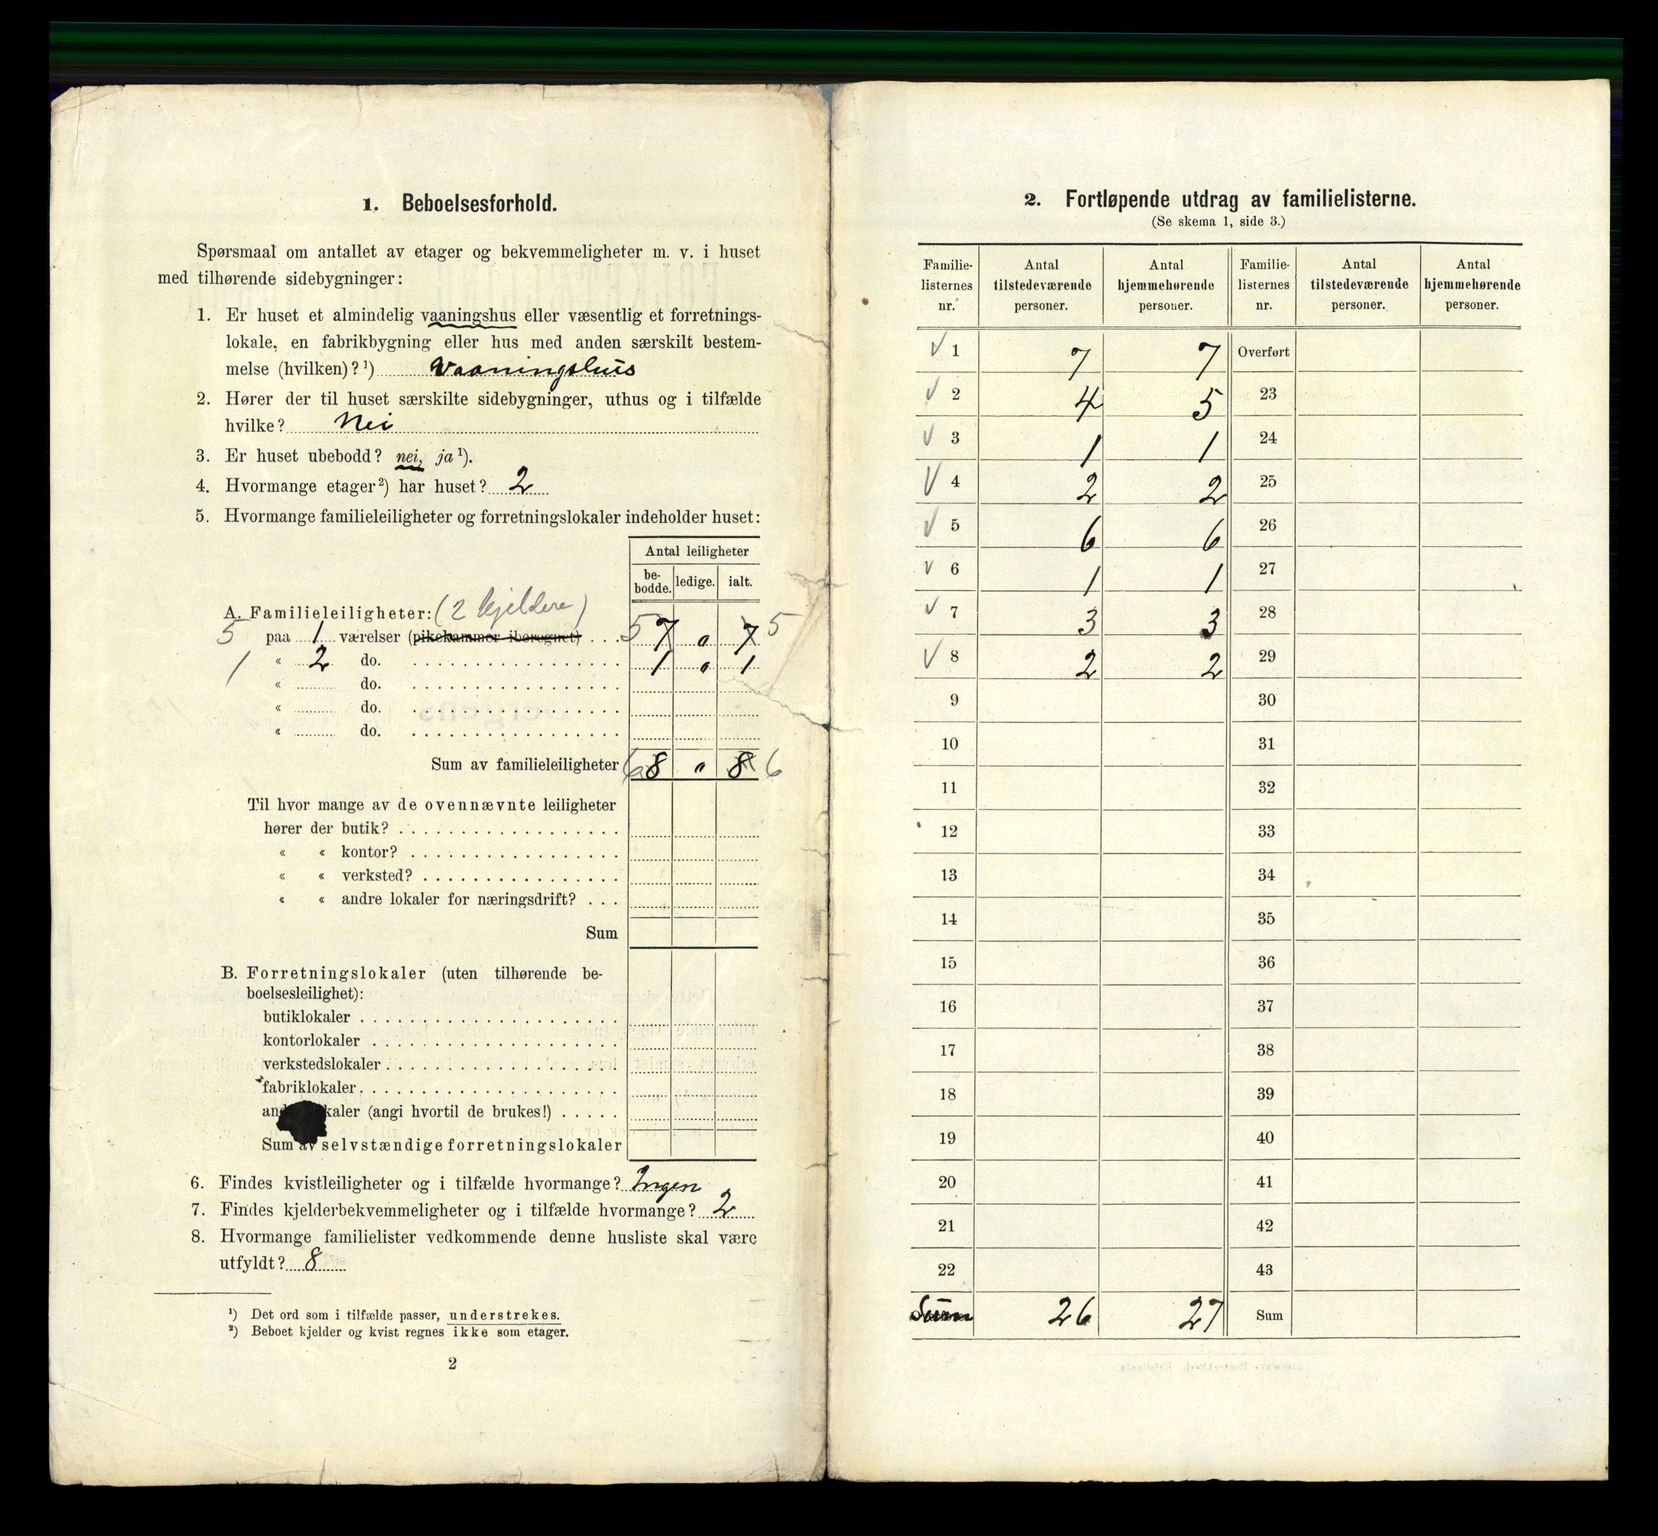 1. Beboelsesforhold.
Spørsmaal om antallet av etager og bekvemmeligheter m. v. i huset
med tilhørende sidebygninger:
1. Er huset et almindelig vaaningshus eller væsentlig et forretnings-
lokale, en fabrikbygning eller hus med anden særskilt bestem-
melse (hvilken)?¹) Vaaningshus
2. Hører der til huset særskilte sidebygninger, uthus og i tilfælde
hvilke? Nei
3. Er huset ubebodd? nei, ja¹).
4. Hvormange etager²) har huset? 2
5. Hvormange familieleiligheter og forretningslokaler indeholder huset:
Antal leiligheter
be-
bodde. ledige. ialt.
A. Familieleiligheter: (2 kjeldere)
5 paa 1 værelser (pikekammer iberegnet) . . . 5 7 „ 7 5
1 « 2 do. 1 „ 1
« do.
« do.
« do.
Sum av familieleiligheter 6 8 „ 8 6
Til hvor mange av de ovennævnte leiligheter
hører der butik?
« « kontor?
« « verksted?
« « andre lokaler for næringsdrift? . . .
Sum
B. Forretningslokaler (uten tilhørende be-
boelsesleilighet):
butiklokaler
kontorlokaler
verkstedslokaler
fabriklokaler
kaler (angi hvortil de brukes!)
Sum av selvstændige forretningslokaler
6. Findes kvistleiligheter og i tilfælde hvormange? Ingen
7. Findes kjelderbekvemmeligheter og i tilfælde hvormange? 2
8. Hvormange familielister vedkommende denne husliste skal være
utfyldt? 8
¹) Det ord som i tilfælde passer, understrekes.
²) Beboet kjelder og kvist regnes ikke som etager.
2
2. Fortløpende utdrag av familielisterne.
(Se skema 1, side 3.)
Familie-
listernes
nr. Antal
tilstedeværende
personer. Antal
hjemmehørende
personer. Familie-
listernes
nr. Antal
tilstedeværende
personer. Antal
hjemmehørende
personer.
✓ 1 7 7 Overført
✓ 2 4 5 23
✓ 3 1 1 24
✓ 4 2 2 25
✓ 5 6 6 26
✓ 6 1 1 27
✓ 7 3 3 28
✓ 8 2 2 29
9 30
10 31
11 32
12 33
13 34
14 35
15 36
16 37
17 38
18 39
19 40
20 41
21 42
22 43
Sum 26 27 Sum